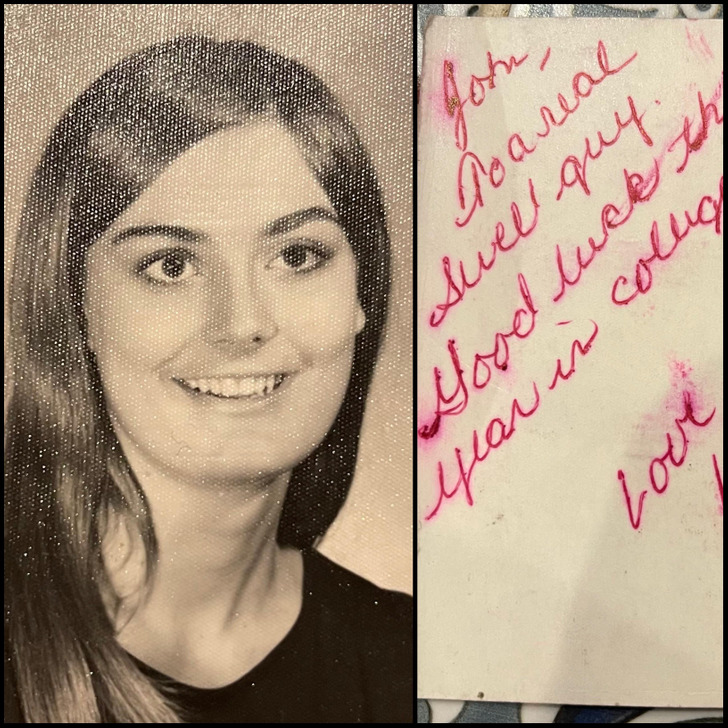 John,
To a real
swell guy.
Good luck th
year in colleg
Love